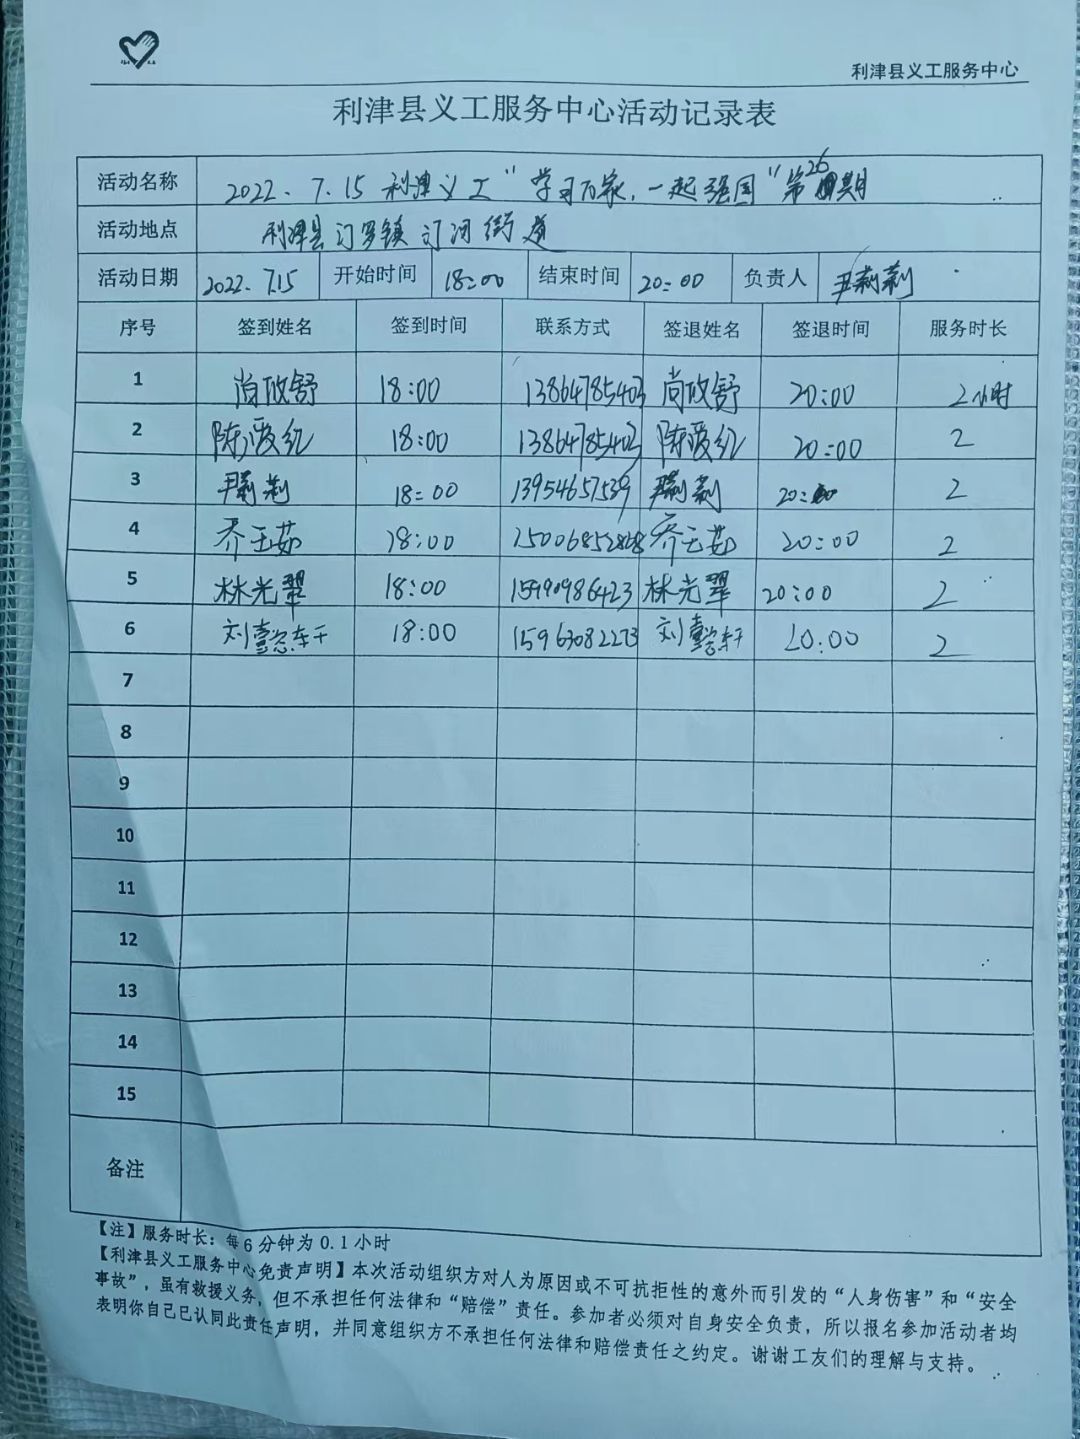 利津县义工服务中心
利津县义工服务中心活动记录表
活动名称 2022.7.15 利津义工“学习百家,一起强国”第26期
活动地点 利津县汀罗镇汀河街道
活动日期 2022.7.15 开始时间 18:00 结束时间 20:00 负责人 尹莉莉
序号 签到姓名 签到时间 联系方式 签退姓名 签退时间 服务时长
1 尚攸舒 18:00 13864785403 尚攸舒 20:00 2小时
2 陈爱红 18:00 13864785403 陈爱红 20:00 2
3 尹莉莉 18:00 13954657539 尹莉莉 20:00 2
4 乔玉茹 18:00 乔玉茹 20:00 2
5 林光翠 18:00 林光翠 20:00 2
6 刘懿轩 18:00 15963082273 刘懿轩 20:00 2
7
8
9
10
11
12
13
14
15
备注
【注】服务时长:每6分钟为0.1小时
【利津县义工服务中心免责声明】本次活动组织方对人为原因或不可抗拒性的意外而引发的“人身伤害”和“安全
事故”,虽有救援义务,但不承担任何法律和“赔偿”责任。参加者必须对自身安全负责,所以报名参加活动者均
表明你自己已认同此责任声明,并同意组织方不承担任何法律和赔偿责任之约定。谢谢工友们的理解与支持。